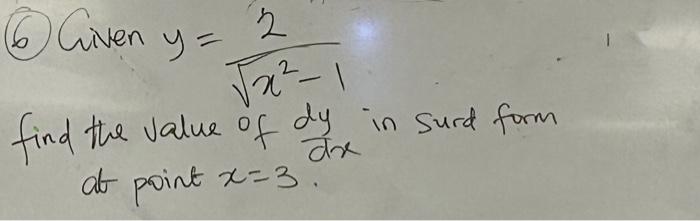 ⑥ Given y = 2/√(x²-1)
find the value of dy/dx in surd form
at point x=3.